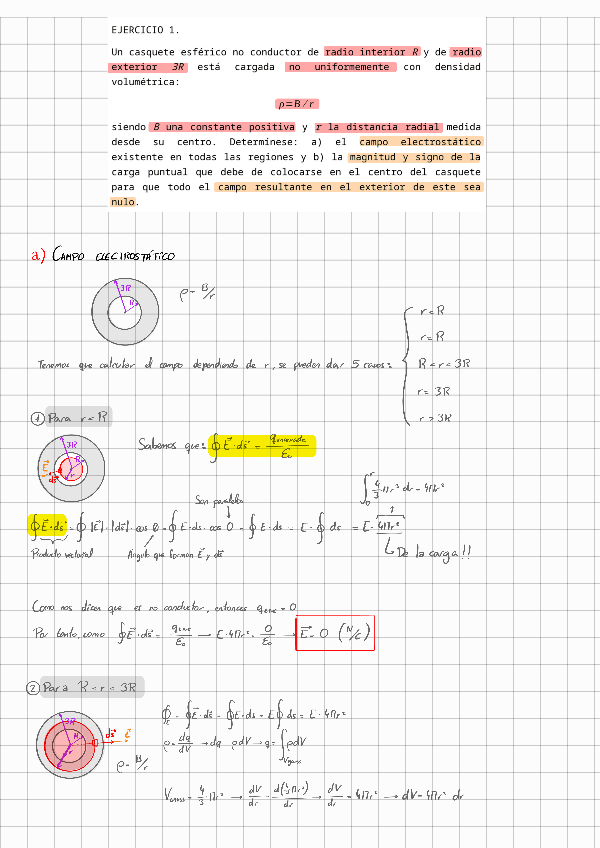 EJERCICIO 1.
Un casquete esférico no conductor de radio interior R y de radio
exterior 3R está cargada no uniformemente con densidad
volumétrica:
ρ=B/r
siendo B una constante positiva y r la distancia radial medida
desde su centro. Determínese: a) el campo electrostático
existente en todas las regiones y b) la magnitud y signo de la
carga puntual que debe de colocarse en el centro del casquete
para que todo el campo resultante en el exterior de este sea
nulo.
a) CAMPO ELECTROSTÁTICO
3R
R
ρ = B/r
r < R
r = R
Tenemos que calcular el campo dependiendo de r, se pueden dar 5 casos:
R < r < 3R
r = 3R
r > 3R
① Para r < R
3R
Sabemos que: ∮ E⃗ · ds⃗ = q encerrada / ε₀
Son paralelos
∫₀ʳ 4/3 πr² dr = 4πr²
∮ E⃗ · ds⃗ = ∮ |E⃗| · |ds⃗| · cos θ = ∮ E · ds · cos 0 = ∮ E · ds = E · ∮ ds = E · 4πr²
Producto vectorial
Ángulo que forman E⃗ y ds⃗
De la carga!!
Como nos dicen que es no conductor, entonces q enc = 0
Por tanto, como ∮ E⃗ · ds⃗ = q enc / ε₀ → E · 4πr² = 0/ε₀ → E⃗ = 0 (N/C)
② Para R < r < 3R
3R
ds⃗ E⃗
ρ = B/r
∮ E⃗ · ds⃗ = ∮ E · ds = E ∮ ds = E · 4πr²
ρ = dq/dV → dq = ρ dV → q = ∫ ρ dV
V = 4/3 · πr³ → dV/dr = d(4/3 πr³)/dr → dV/dr = 4πr² → dV = 4πr² dr